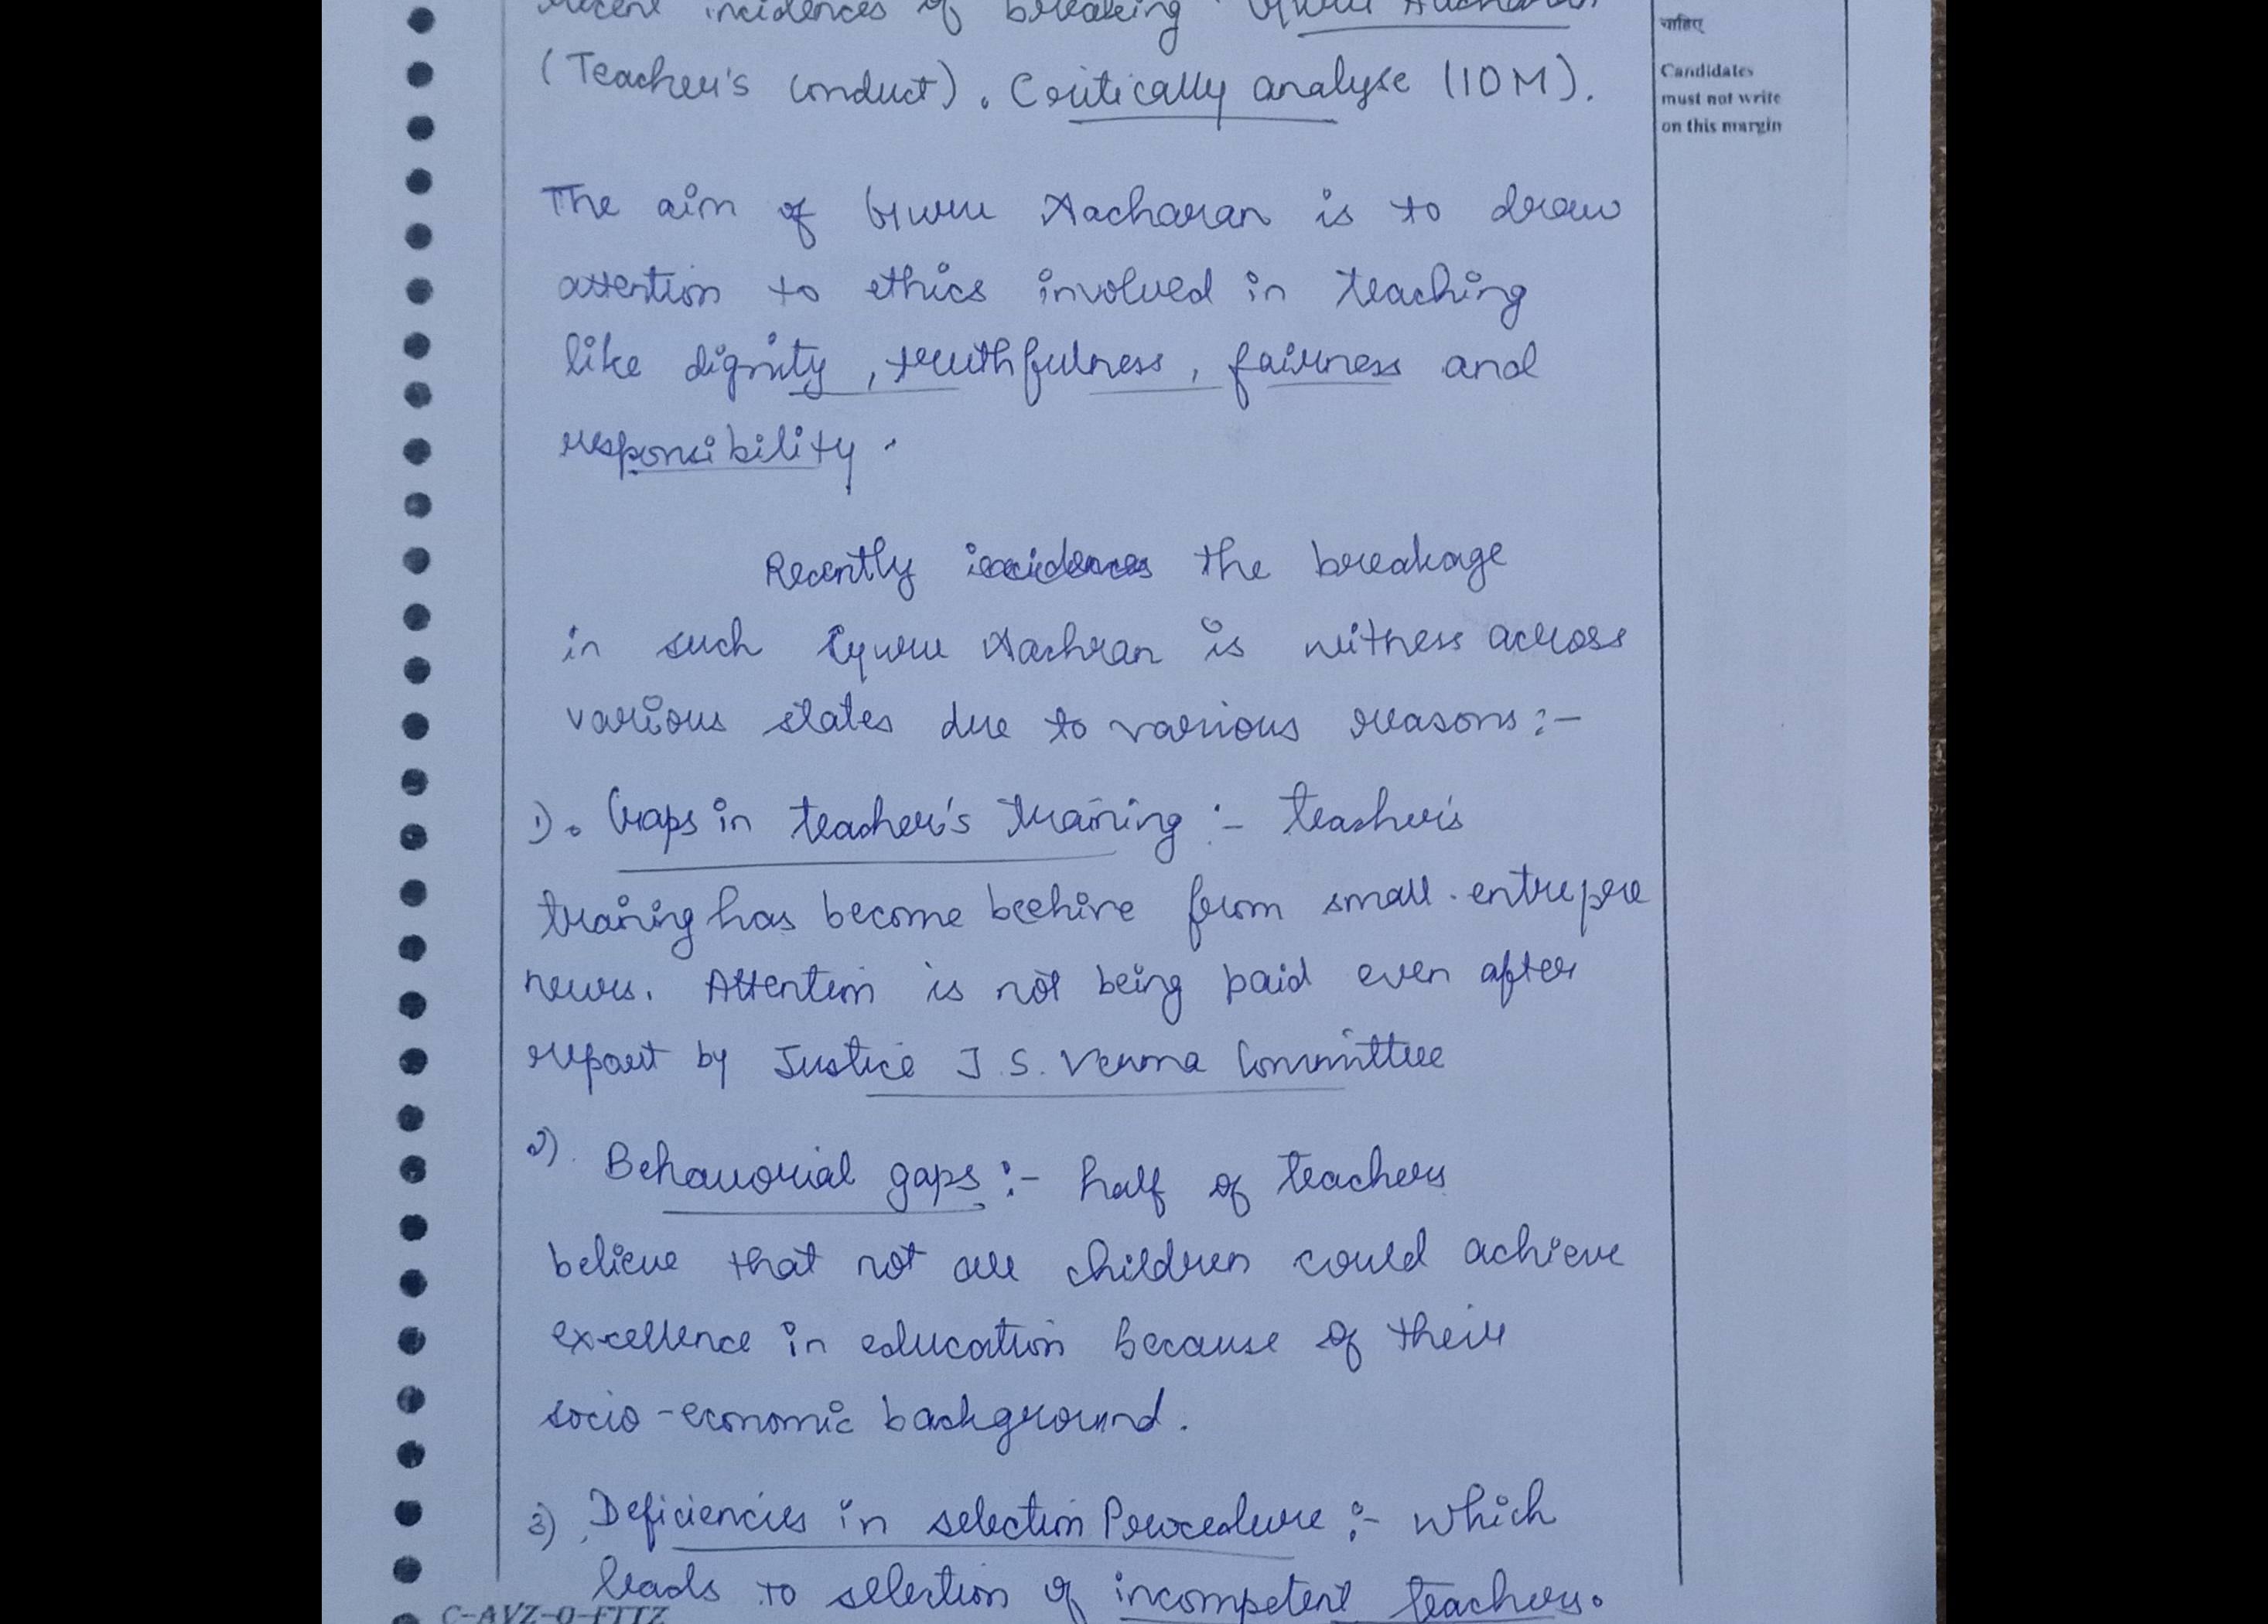 recent incidences of breaking Guru Aacharan
(Teacher's Conduct). Critically analyse (10M).
चाहिए
Candidates
must not write
on this margin
The aim of Guru Aacharan is to draw
attention to ethics involved in teaching
like dignity, truthfulness, fairness and
responsibility.
Recently incidences the breakage
in such Guru Aachran is witness across
various states due to various reasons:-
1). Gaps in teacher's training :- teacher's
training has become beehive from small entrepre
neurs. Attention is not being paid even after
report by Justice J.S. Verma Committee
2). Behavourial gaps :- half of teachers
believe that not all children could achieve
excellence in education because of their
socio-economic background.
3) Deficiencies in selection Procedure :- which
leads to selection of incompetent teachers.
C-AVZ-O-FTTZ